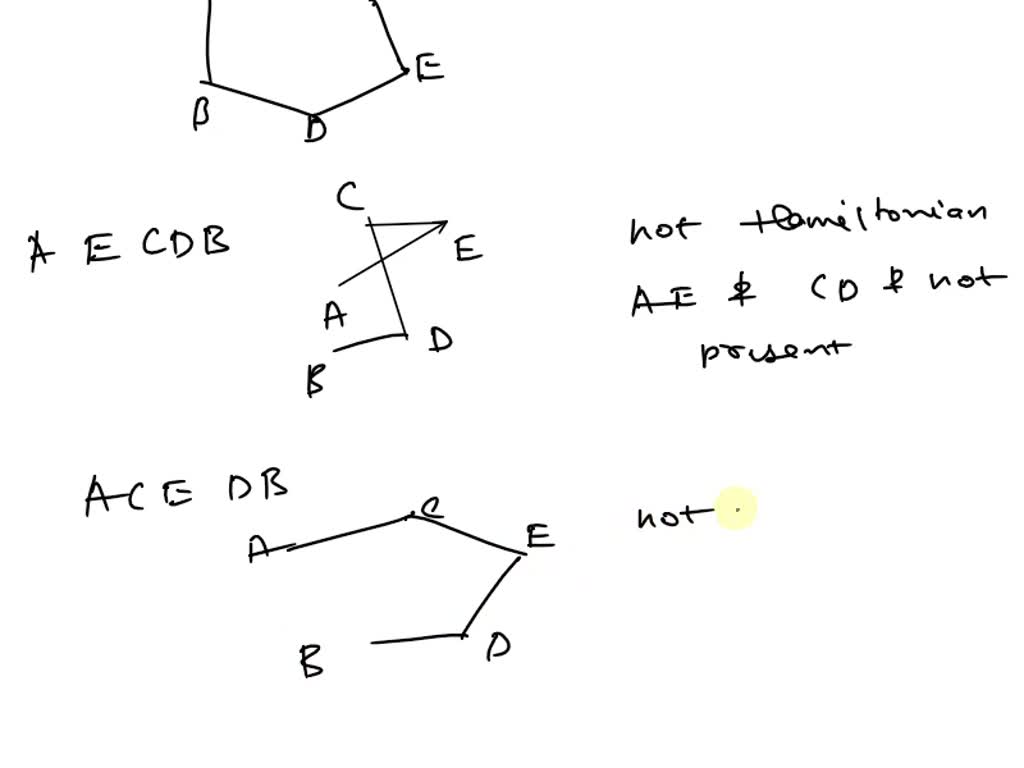 E
B
D
C
A E CDB
E
A
D
B
not Hamiltonian
AE & CD & not
present
ACE DB
C
A
E
not
B
D